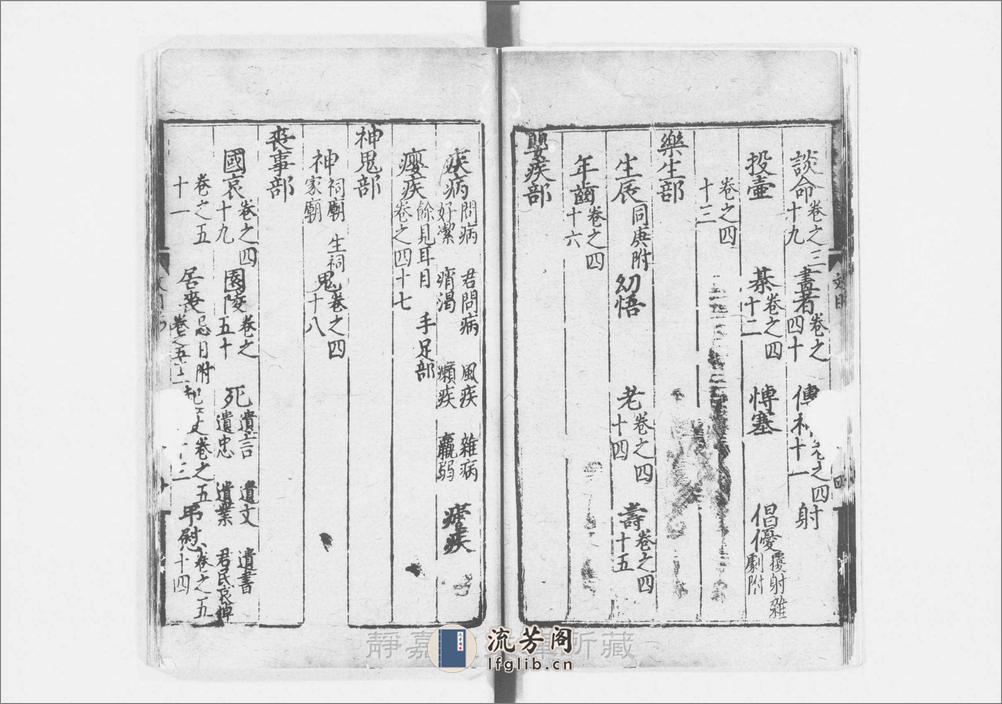 談命卷之三十九 畫者卷之四十 傳神卷之四十一 射
投壺 棊卷之四十二 博塞 倡優擾射雜劇附
卷之四十三
樂生部
生辰同庚附 幼悟 老卷之四十四 壽卷之四十五
年齒卷之四十六
嬰疾部
疾病問病好潔 君問病痟渴 風疾癩疾 雜病羸弱 瘧疾
癭疾餘見耳目手足部卷之四十七
神鬼部
神祠廟家廟 生祠 鬼卷之四十八
喪事部
國哀卷之四十九 園陵卷之五十 死遺言遺忠 遺文遺業 遺書君民哀悼
卷之五十一 居喪忌日附 卷之五十四 弔慰
靜嘉 所藏
流芳阁
lfglib.cn